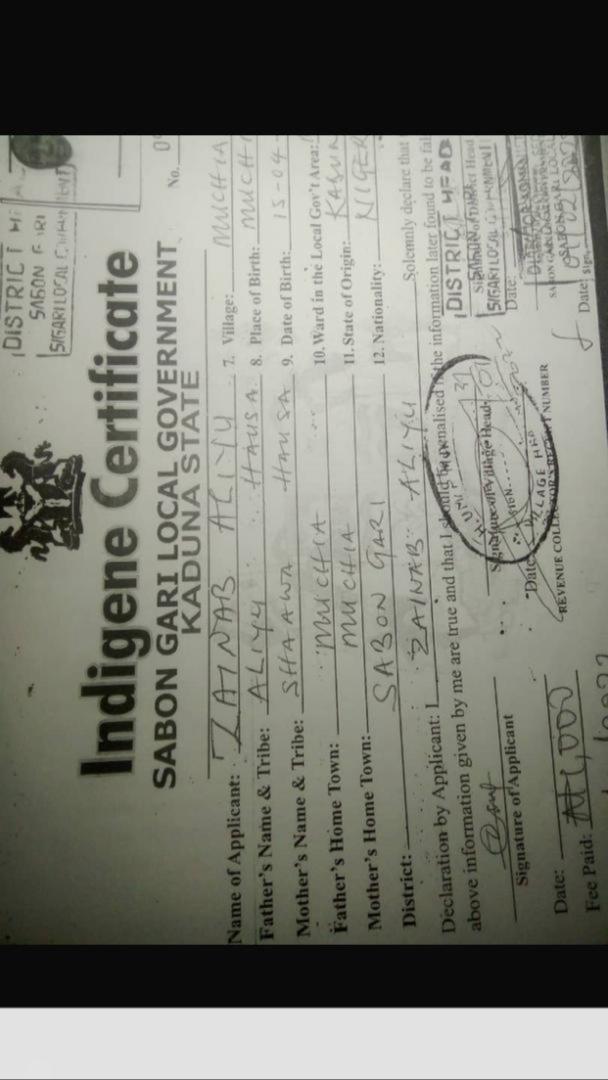 DISTRICT
SABON GARI
S/GARI LOCAL GOVERNMENT
No.
Indigene Certificate
SABON GARI LOCAL GOVERNMENT
KADUNA STATE
Name of Applicant: ZAINAB ALIYU 7. Village: MUCHIA
Father's Name & Tribe: ALIYU HAUSA 8. Place of Birth: MUCHI
Mother's Name & Tribe: SHAAWA HAUSA 9. Date of Birth: 15-04-
Father's Home Town: MUCHIA 10. Ward in the Local Gov't Area:
Mother's Home Town: MUCHIA 11. State of Origin: KADUN
District: SABON GARI 12. Nationality: NIGER
Declaration by Applicant: I ZAINAB ALIYU Solemnly declare that
above information given by me are true and that I should be penalised the information later found to be fal
DISTRICT HEAD
S/GARI LOCAL GOVERNMENT
Signature of Applicant
Signature of Village Head
SIGN
Date:
VILLAGE HEAD
Date:
Date:
Date:
Sign
Fee Paid: ₦1,000
REVENUE COLLECTOR'S RECEIPT NUMBER